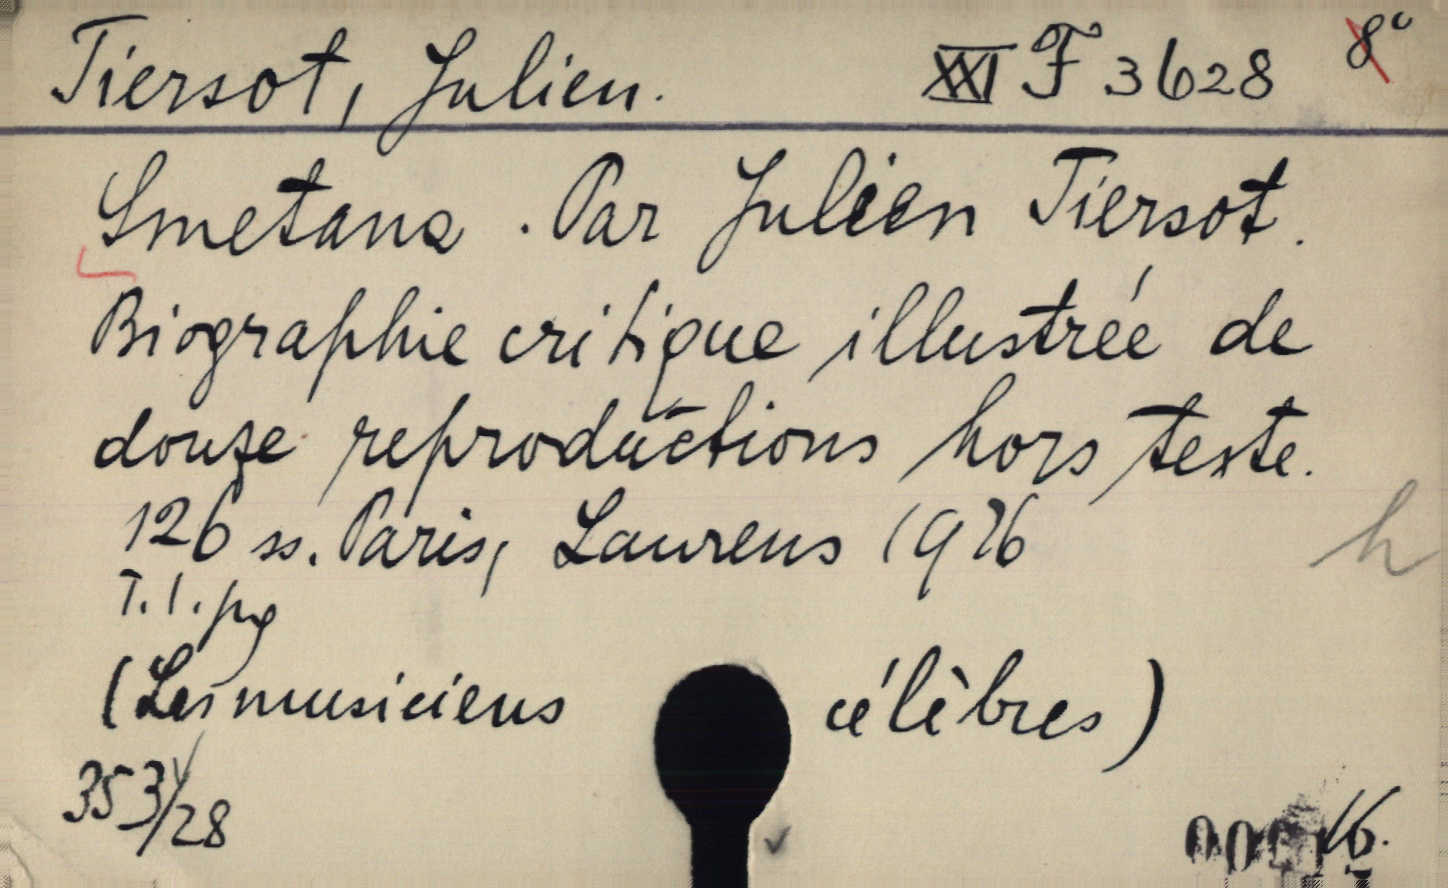 Tiersot, Julien. XXI F 3628 8°
Smetana. Par Julien Tiersot.
Biographie critique illustrée de
douze reproductions hors texte.
126 ss. Paris, Laurens 1926
T. 1. pg
(Les musiciens célèbres)
353/28
16.